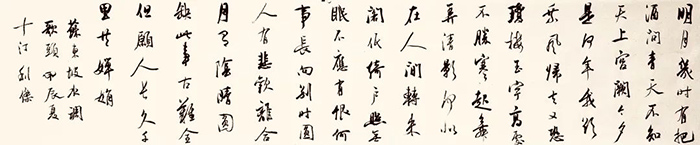 明月幾时有把
酒问青天不知
天上宫阙今夕
是何年我欲
乘风歸去又恐
瓊楼玉宇高處
不勝寒起舞
弄清影何似
在人间轉朱
阁低绮户照无
眠不應有恨何
事長向别时圆
人有悲歡離合
月有陰晴圆
缺此事古難全
但願人长久千
里共婵娟
蘇东坡水调
歌頭甲辰夏